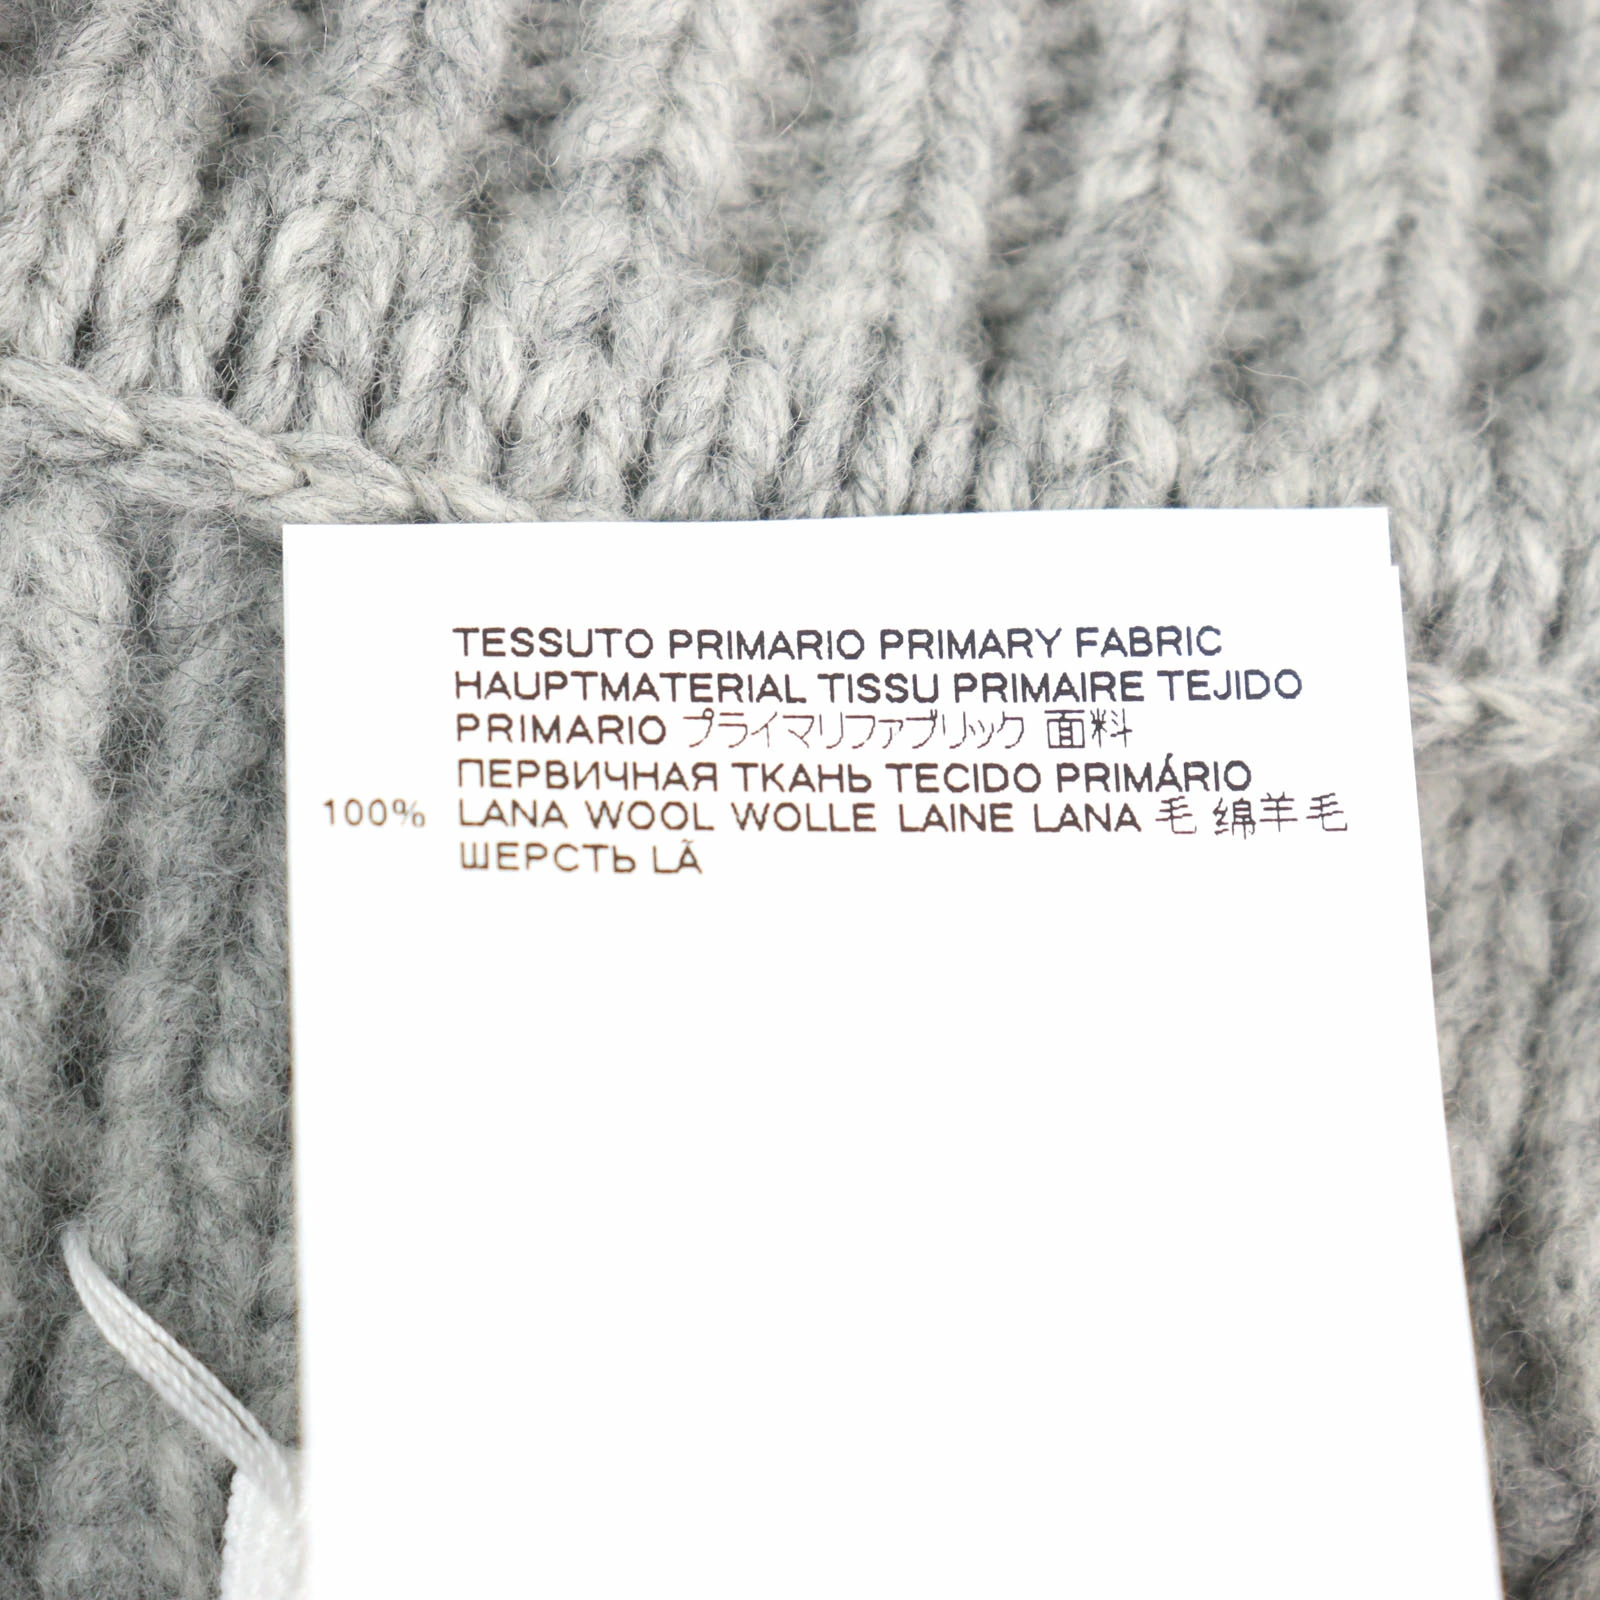 TESSUTO PRIMARIO PRIMARY FABRIC
HAUPTMATERIAL TISSU PRIMAIRE TEJIDO
PRIMARIO プライマリファブリック 面料
ПЕРВИЧНАЯ ТКАНЬ TECIDO PRIMÁRIO
100% LANA WOOL WOLLE LAINE LANA 毛 绵羊毛
ШЕРСТЬ LÃ